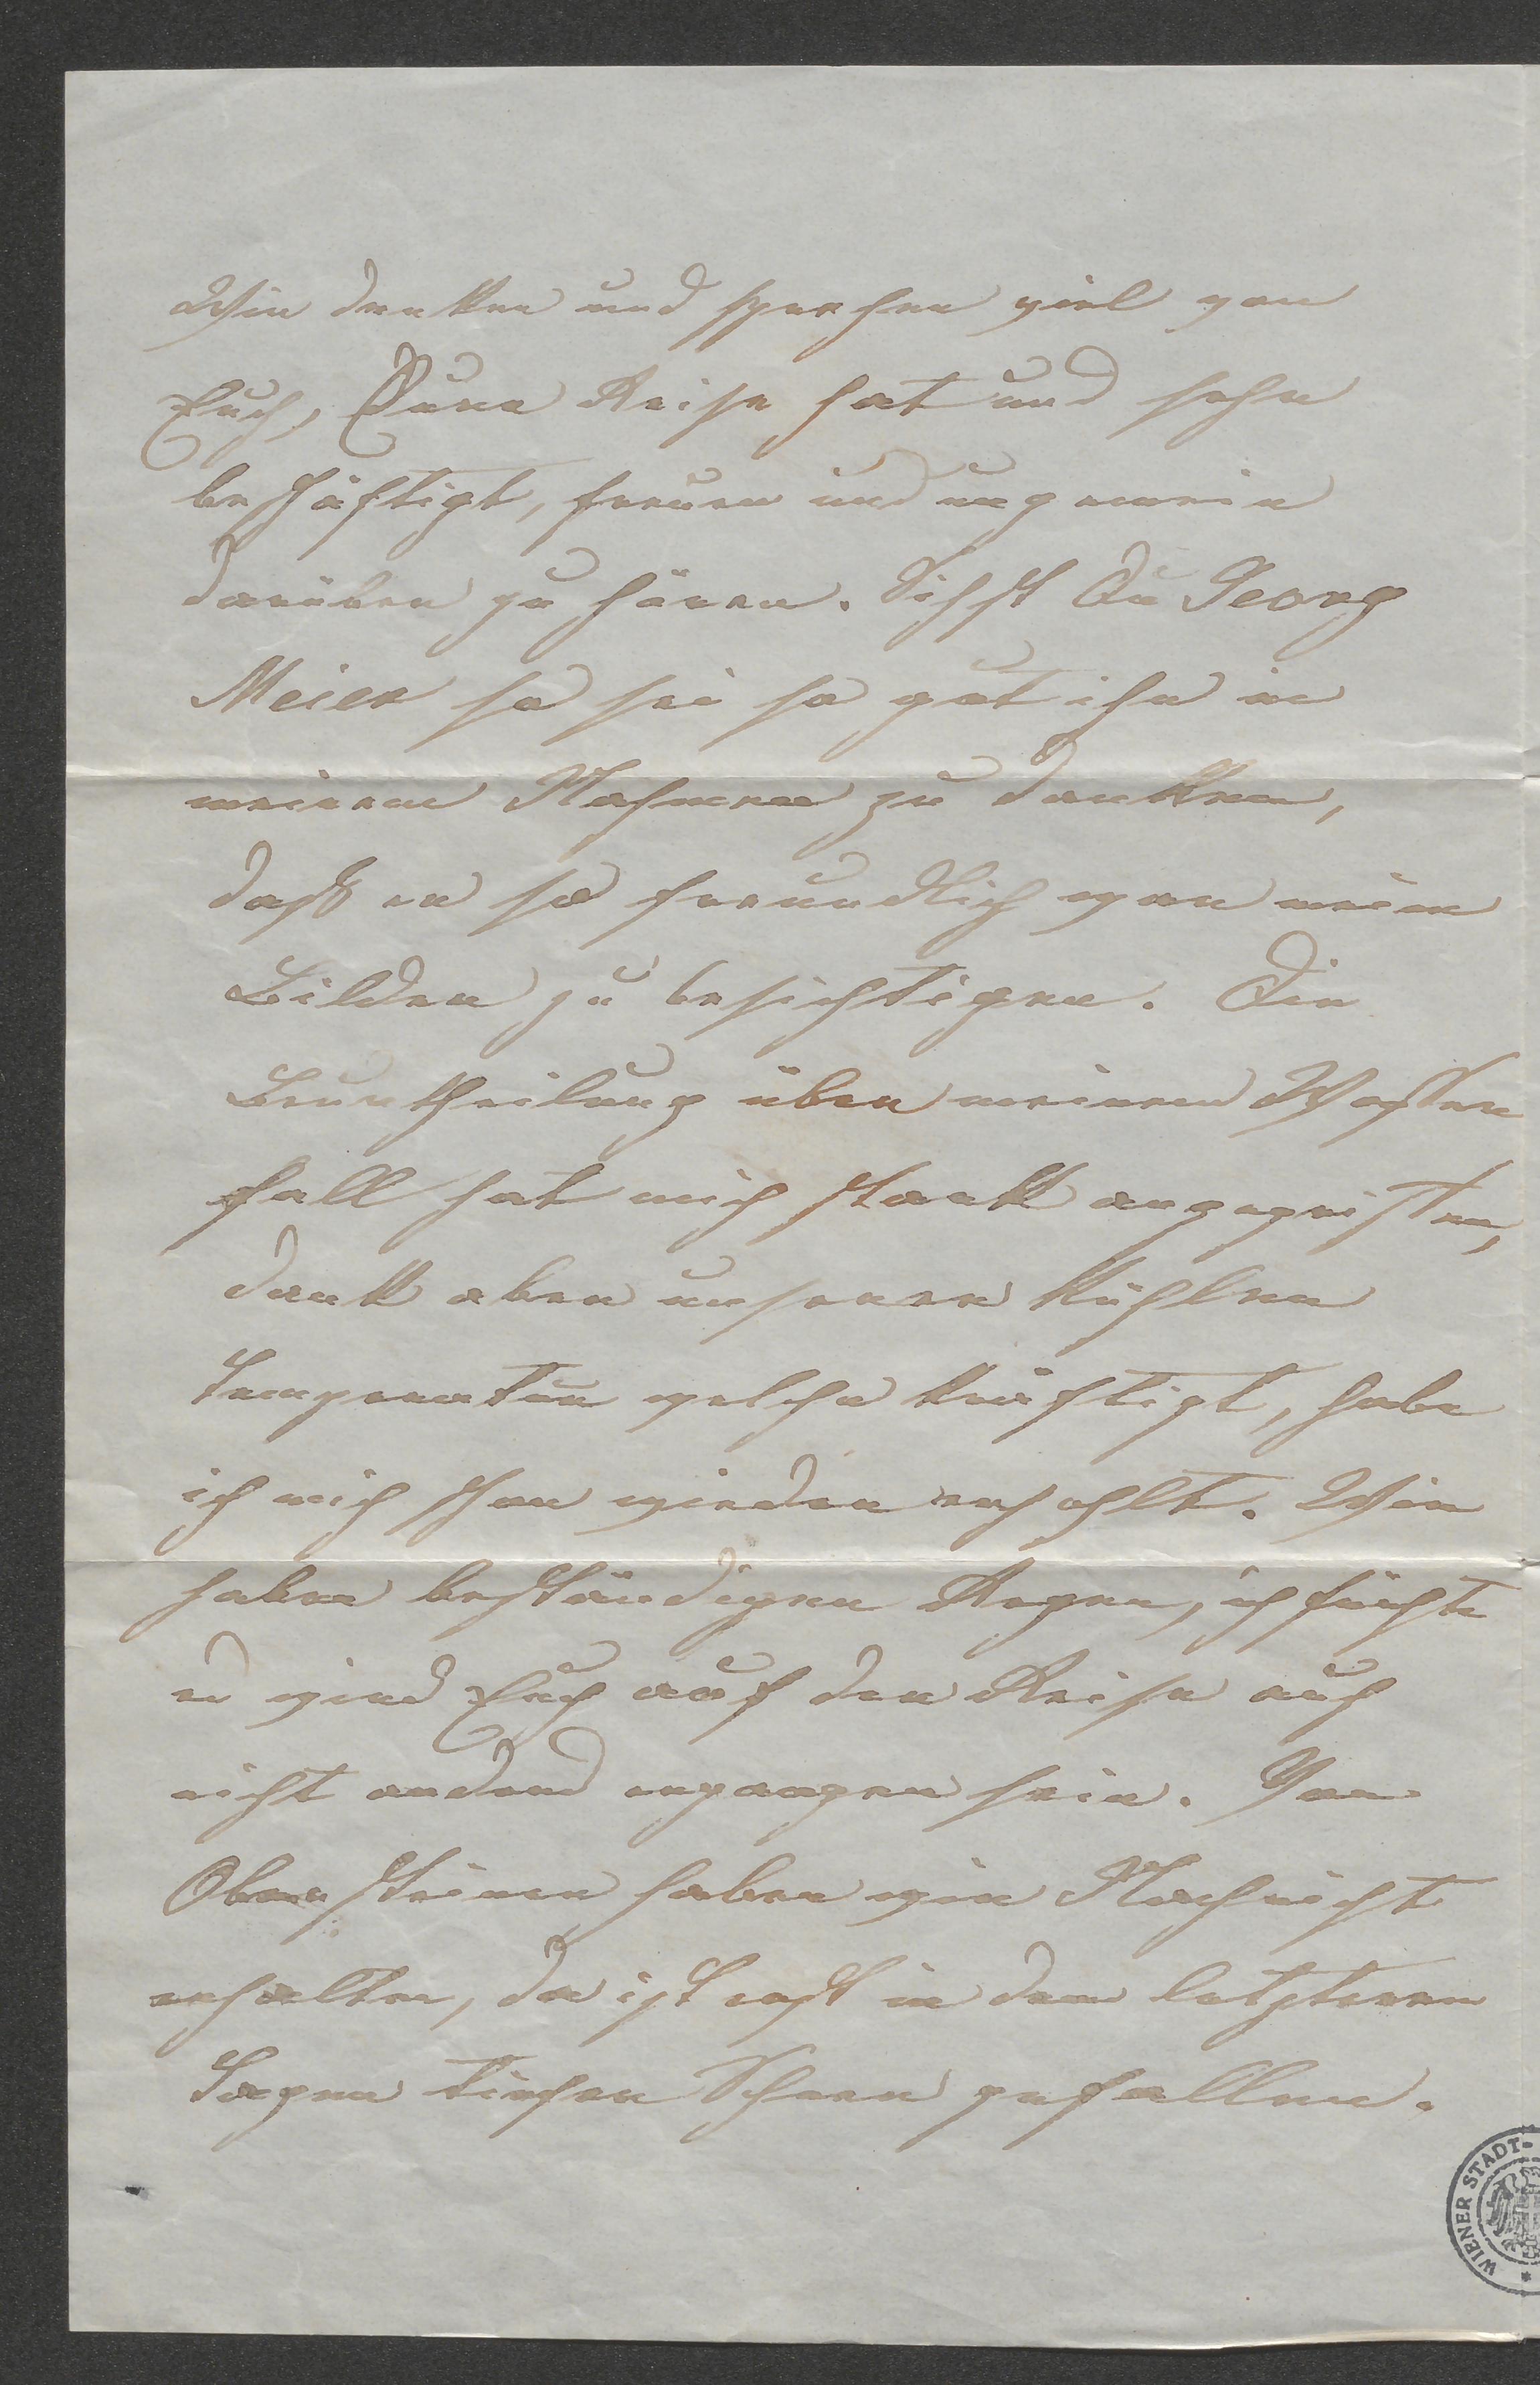 Wir denken und sprechen viel von
Euch, Eure Reise hat uns sehr
beschäftigt, freuen uns ungemein
darüber zu hören. Siehst Du Georg
Meier so sei so gut ihn in
meinem Nahmen zu danken,
dass er so freundlich war mein
Bilder zu besichtigen. Die
Beurtheilung über meinen Wasser
fall hat mich stark angegriffen,
dank aber unserer kühlen
Temperatur welche kräftigt, habe
ich mich schon wieder erhohlt. Wir
haben beständigen Regen, ich fürchte
es wird Euch auf der Reise auch
nicht anders ergangen sein. Von
Obersteiner haben wir Nachricht
erhalten, da ist erst in den letzteren
Tagen tiefer Schnee gefallen.
WIENER STADT-